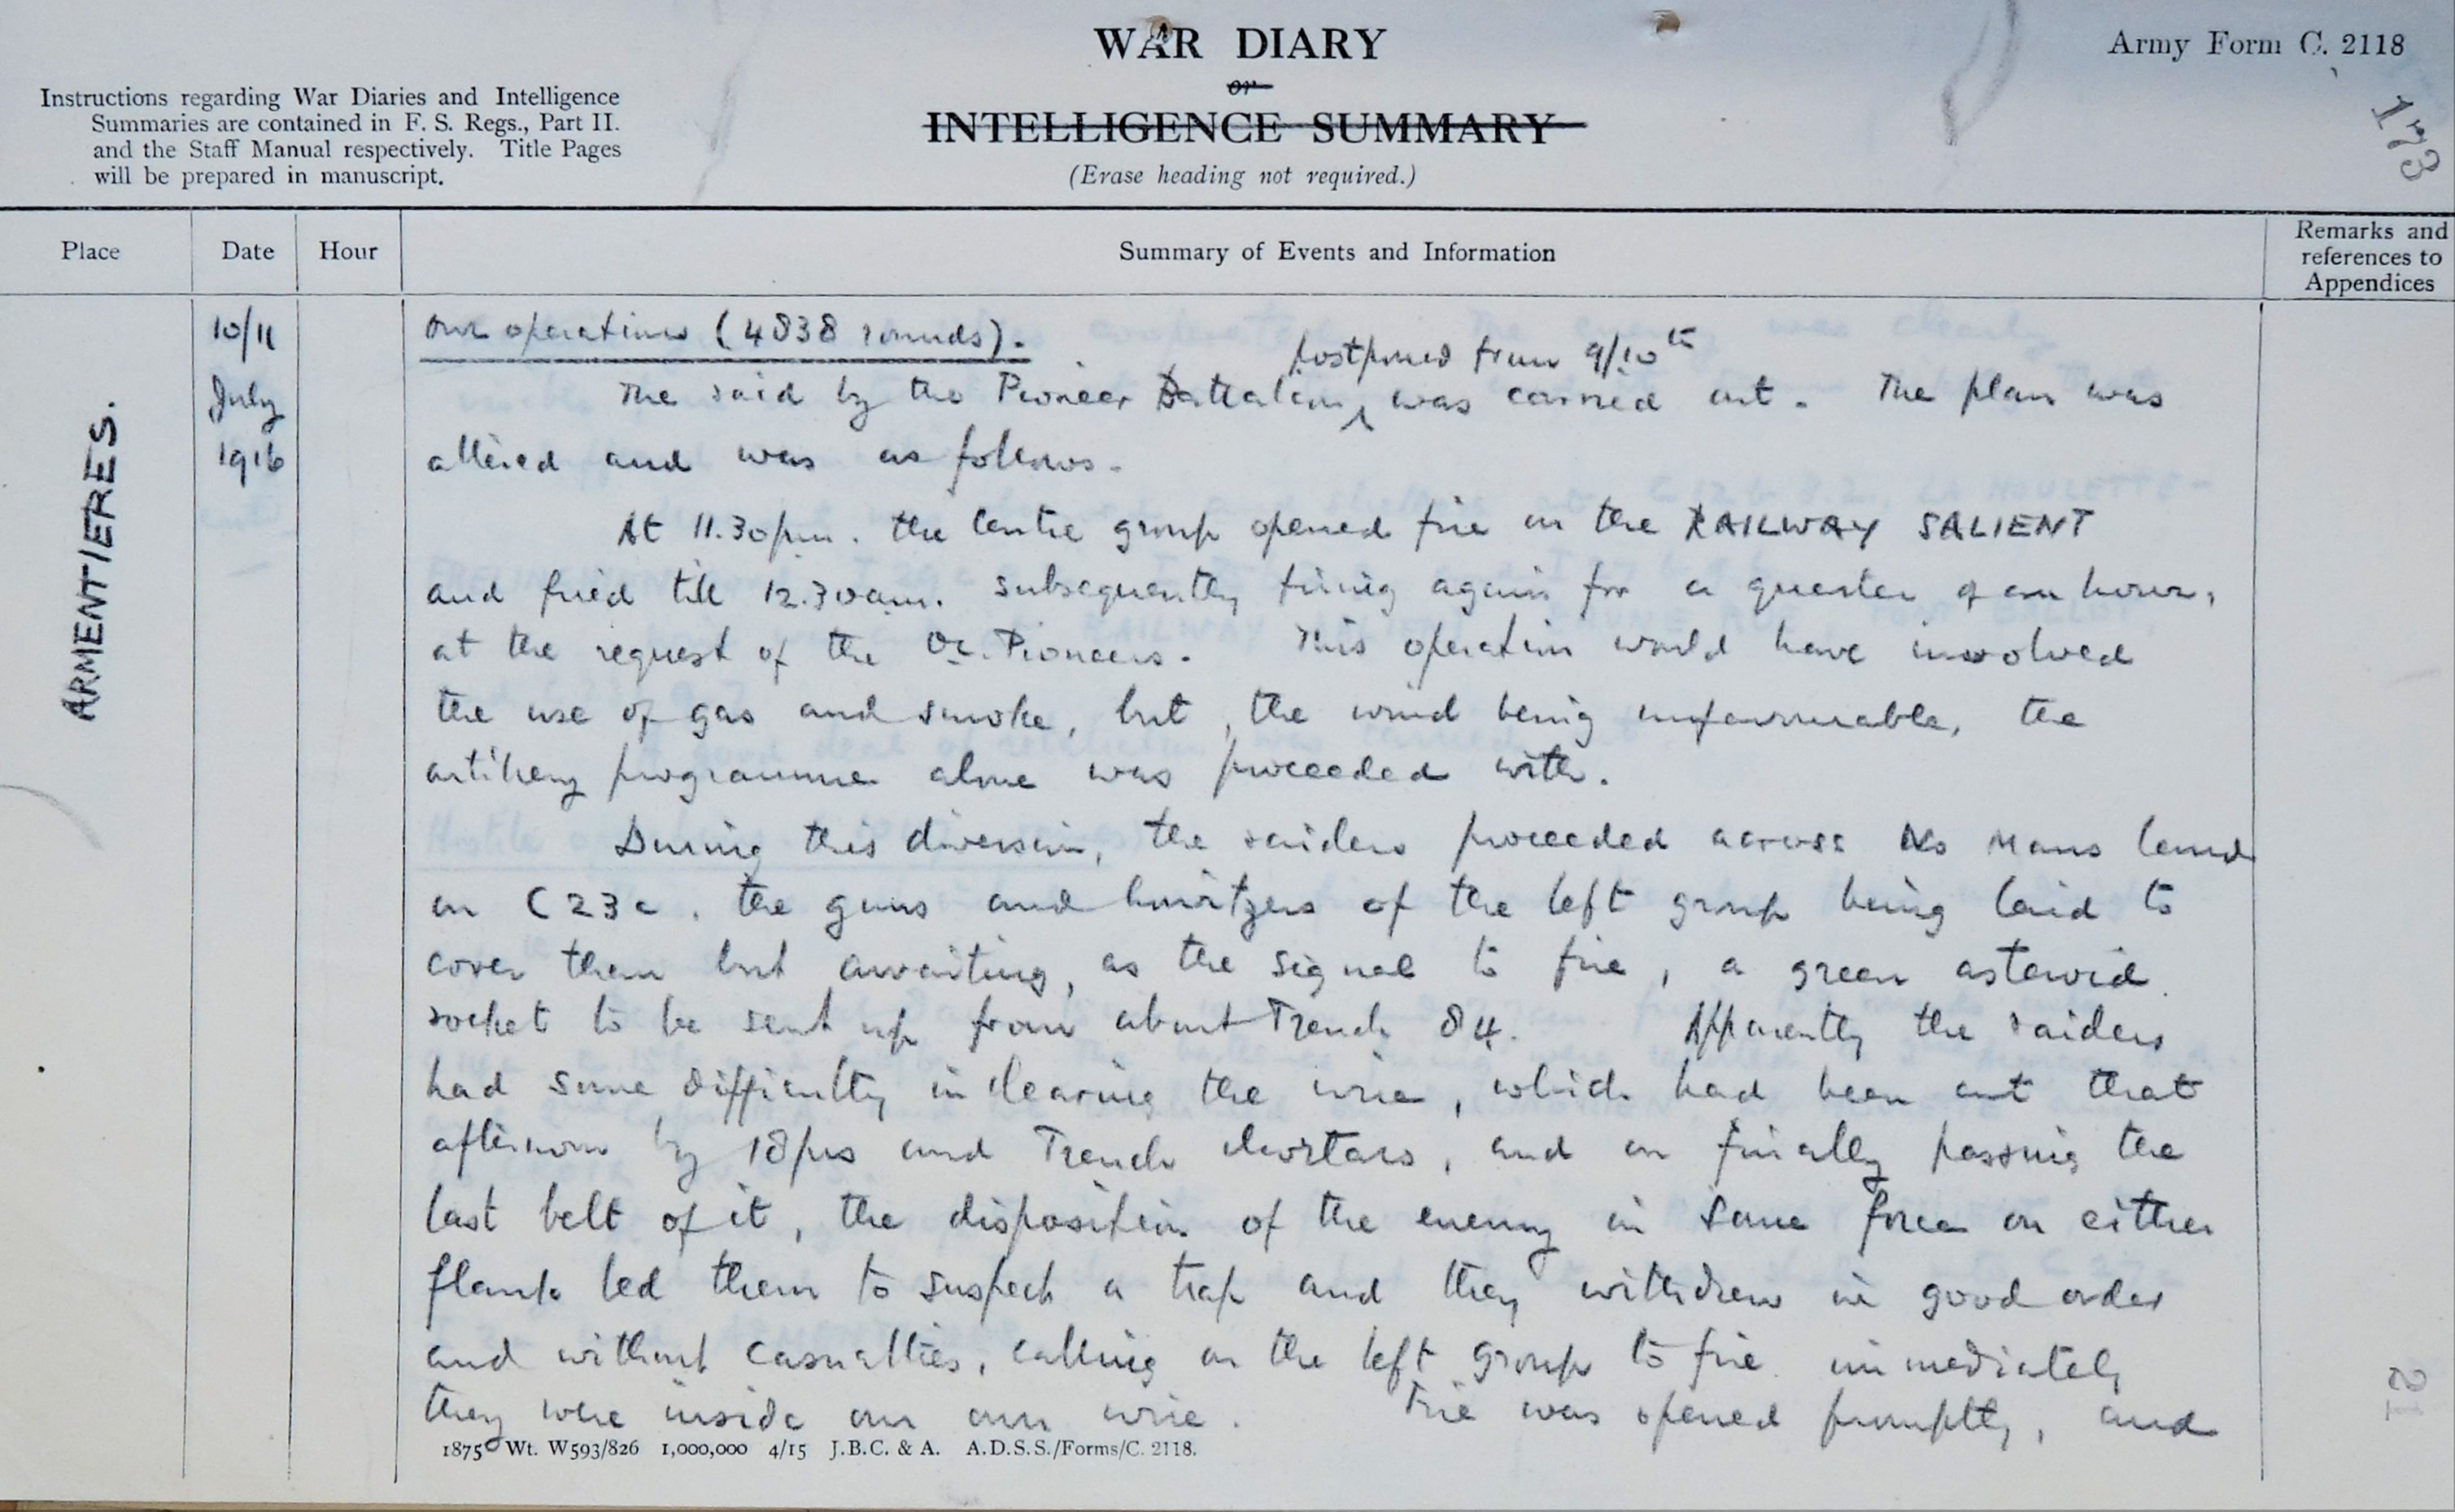 WAR DIARY
or
INTELLIGENCE SUMMARY
(Erase heading not required.)
Army Form C. 2118
173
Instructions regarding War Diaries and Intelligence
Summaries are contained in F. S. Regs., Part II.
and the Staff Manual respectively. Title Pages
will be prepared in manuscript.
Place
Date
Hour
Summary of Events and Information
Remarks and
references to
Appendices
ARMENTIERES.
10/11
July
1916
Our operations (4838 rounds).
postponed from 9/10th
The raid by the Pioneer Battalion was carried out. The plan was
altered and was as follows.
At 11.30pm. the Centre group opened fire on the RAILWAY SALIENT
and fired till 12.30am. subsequently firing again for a quarter of an hour,
at the request of the OC. Pioneers. This operation would have involved
the use of gas and smoke, but, the wind being unfavourable, the
artillery programme alone was proceeded with.
During this diversion, the raiders proceeded across No Mans Land
in C23c, the guns and howitzers of the left group being laid to
cover them but awaiting, as the signal to fire, a green asteroid
rocket to be sent up from about Trench 84. Apparently the raiders
had some difficulty in clearing the wire, which had been cut that
afternoon by 18prs and Trench Mortars, and on finally passing the
last belt of it, the disposition of the enemy in some force on either
flank led them to suspect a trap and they withdrew in good order
and without casualties, calling on the left group to fire immediately
they were inside our own wire. Fire was opened promptly, and
1875 Wt. W593/826 1,000,000 4/15 J.B.C. & A. A.D.S.S./Forms/C. 2118.
21